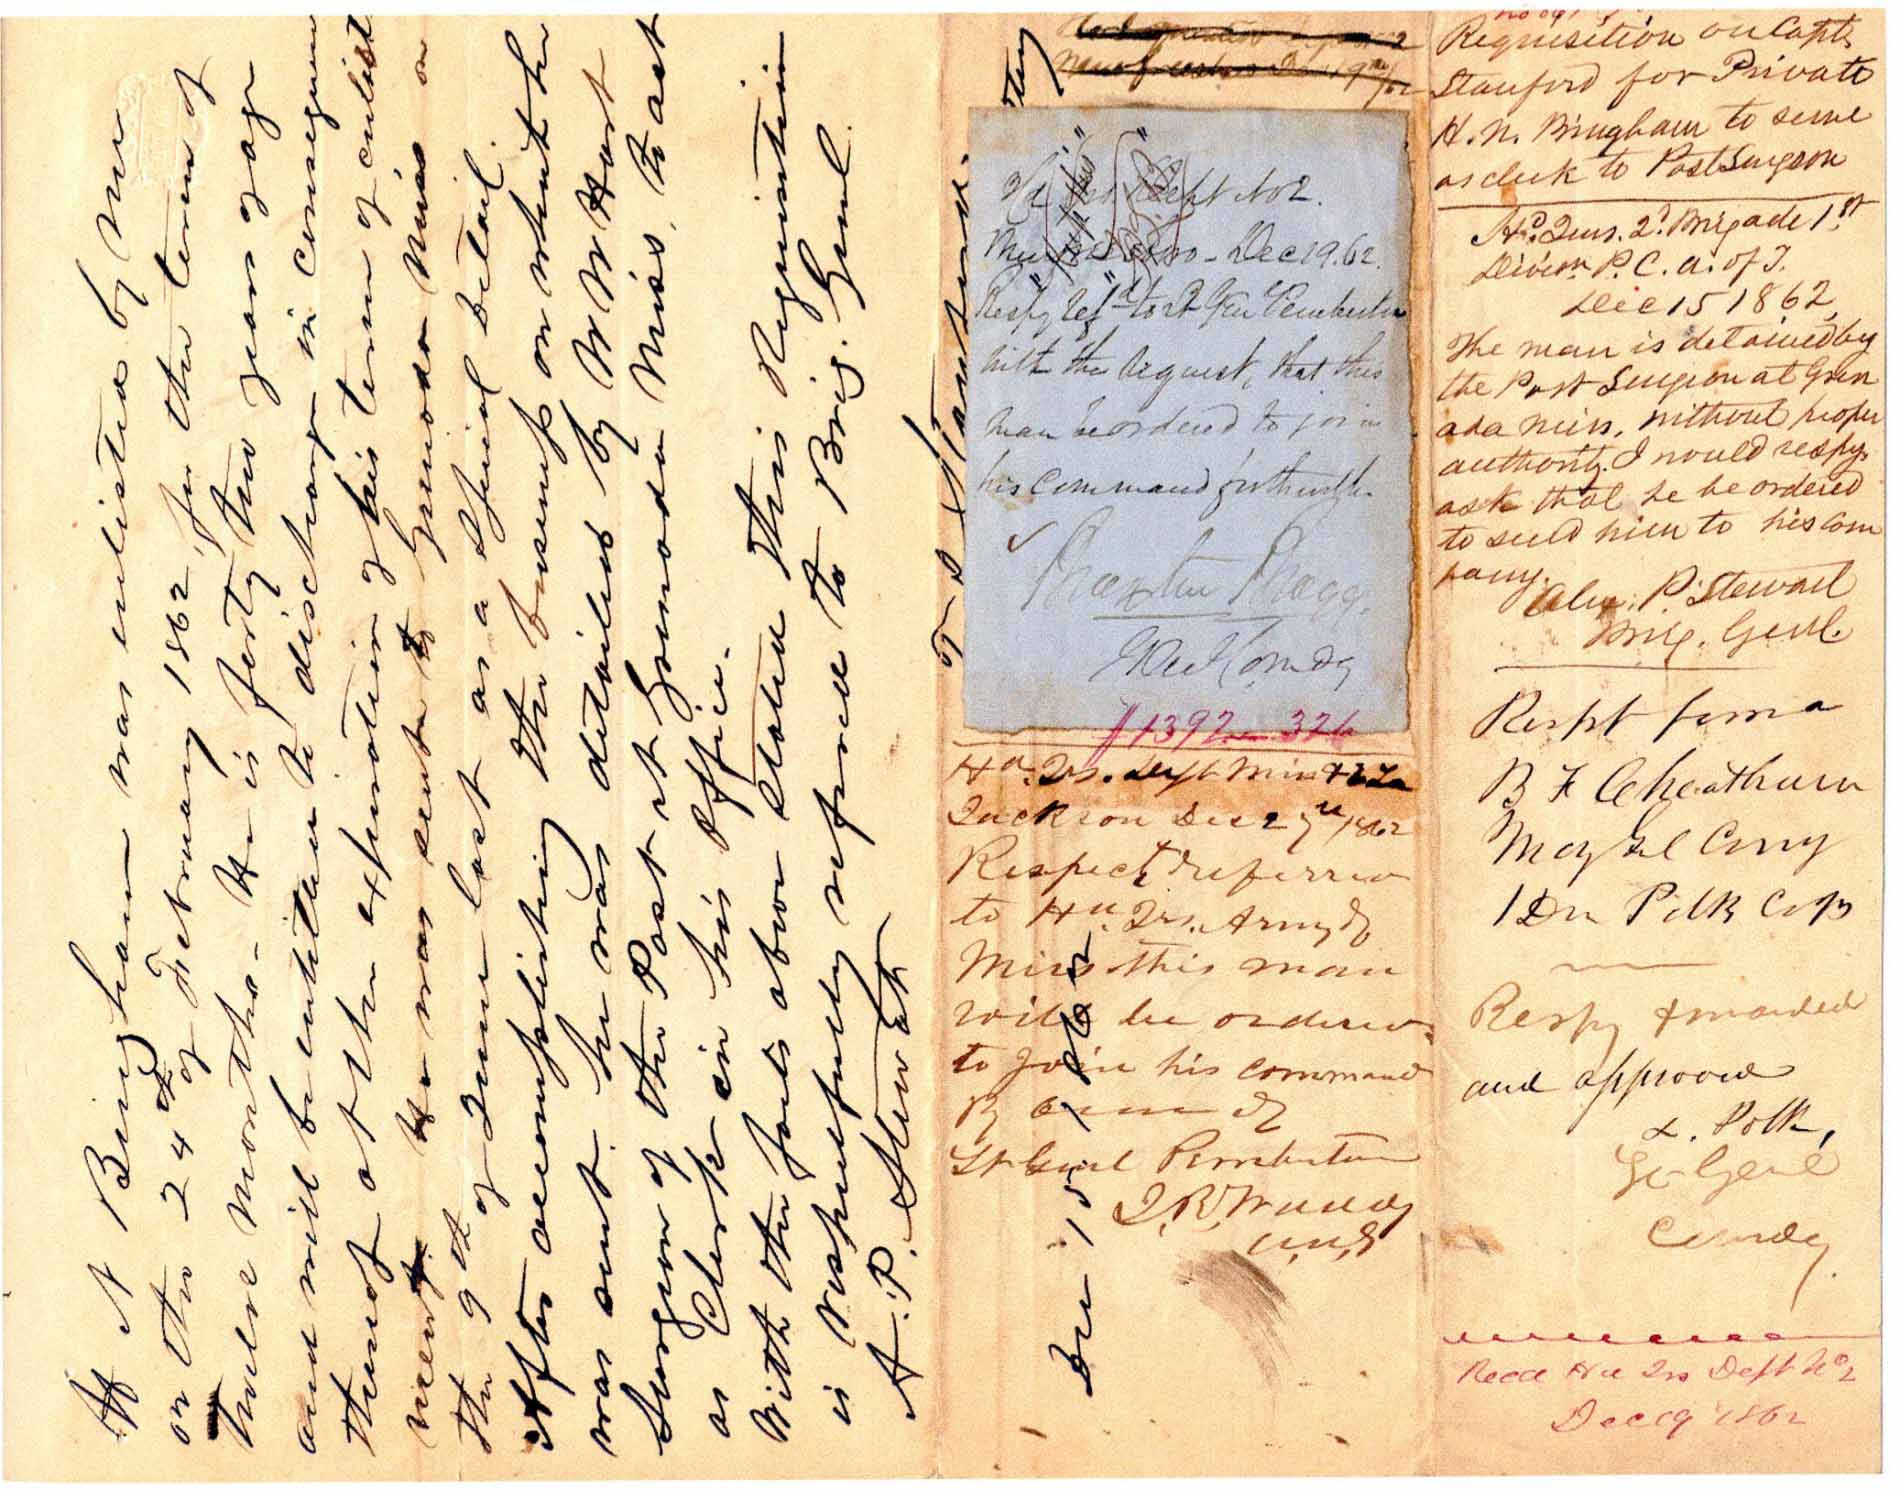 H N Bingham was enlisted by me
on the 24th of February 1862, for the term of
twelve months. He is forty two years of age
and will be entitled to discharge in consequence
thereof at the expiration of his term of enlist
ment. He was sent to Grenada Miss on
the 9th of June last as a special detail.
After accomplishing the business on which he
was sent. he was detailed by W W Hart
Surgeon of the Post at Grenada Miss, to act
as Clerk in his office.
With the facts above stated this Requisition
is respectfully refered to Brig. Genl.
A. P. Stewart
T J Stanford
Dec 15, 1862
Hd Qrs Dept No 2.
Murfreesboro - Dec 19. 62.
Respy refd to Lt Gen Pemberton
with the request, that this
man be ordered to join
his command forthwith.
Braxton Bragg
Genl Comdg
1392 326
Hd. Qrs. Dept Miss & E La
Jackson Dec 27th 1862
Respectt referred
to Hd. Qrs. Army of
Miss this man
will be ordered
to join his command
By Comd of
Lt Genl Pemberton
Requisition on Capt
Stanford for Private
H. N. Bingham to serve
as clerk to Post Surgeon
Hd. Qurs. 2d Brigade 1st
Division P. C. A. of T.
Dec 15 1862,
The man is detained by
the Post Surgeon at Gren
ada Miss, without proper
authority. I would respy.
ask that he be ordered
to send him to his Com
pany.
Alex. P. Stewart
Brig. Genl.
Respt forwa
B F Cheatham
Maj Gel Comg
1 Div Polk Cops
Respy forwarded
and approved
L. Polk,
Lt Genl
Comdg
Recd Hd Qrs Dept No 2
Dec 19 1862